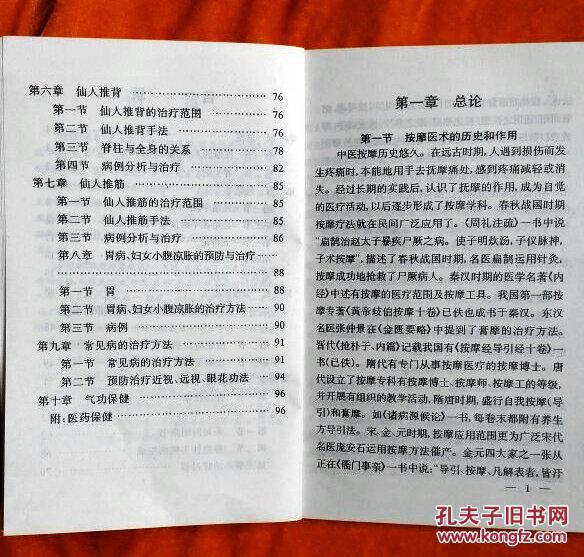 第六章 仙人推背 …………………… 76
第一节 仙人推背的治疗范围 ………… 76
第二节 仙人推背手法 ……………… 76
第三节 脊柱与全身的关系 …………… 78
第四节 病例分析与治疗 ……………… 82
第七章 仙人推筋 …………………… 85
第一节 仙人推筋的治疗范围 ………… 85
第二节 仙人推筋手法 ……………… 85
第三节 病例分析与治疗 ……………… 86
第八章 胃病、妇女小腹凉胀的预防与治疗……
…………………………………… 88
第一节 胃 …………………………… 88
第二节 胃病、妇女小腹凉胀的治疗方法 … 90
第三节 病例 ………………………… 90
第九章 常见病的治疗方法 …………… 91
第一节 常见病的治疗方法 …………… 91
第二节 预防治疗近视、远视、眼花功法 … 94
第十章 气功保健 …………………… 96
附:医药保健 ………………………… 96
第一章 总论
第一节 按摩医术的历史和作用
中医按摩历史悠久。在远古时期,人遇到损伤而发
生疼痛时,本能地用手去抚摩痛处,感到疼痛减轻或消
失。经过长期的实践后,认识了抚摩的作用,成为自觉
的医疗活动,以后逐步形成了按摩学科。春秋战国时期
按摩疗法就在民间广泛应用了。《周礼注疏》一书中说
"扁鹊治赵太子暴疾尸厥之病。使子明炊汤,子仪脉神,
子术按摩",描述了春秋战国时期,名医扁鹊运用针灸、
按摩成功地抢救了尸厥病人。秦汉时期的医学名著《内
经》中述有按摩的医疗范围及按摩工具。我国第一部按
摩专著《黄帝歧伯按摩十卷》已佚也成书于秦汉。东汉
名医张仲景在《金匮要略》中提到了膏摩的治疗方法。
晋代《抢朴子、内篇》记载我国有《按摩经导引经十卷》一
书(已佚)。隋代有专门从事按摩医疗的按摩博士。唐
代设立了按摩专科有按摩博士、按摩师、按摩工的等级,
并开展有组织的教学活动,隋唐时期,盛行自我按摩(导
引)和膏摩。如《诸病源候论》一书,每卷末都附有养生
方导引法。宋、金、元时期,按摩应用范围更为广泛宋代
名医庞安石运用按摩方法催产。金元四大家之一张从
正在《儒门事亲》一书中说:"导引、按摩、凡解表者,皆汗
— 1 —
孔夫子旧书网